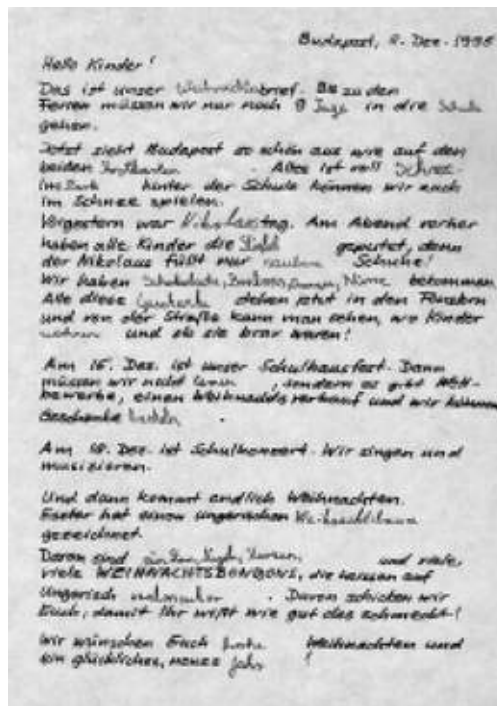 Budapest, 8. Dez. 1995
Hallo Kinder!
Das ist unser Weihnachtsbrief. Bis zu den
Ferien müssen wir nur noch 9 Tage in die Schule
gehen.
Jetzt sieht Budapest so schön aus wie auf den
beiden Postkarten. Alles ist voll Schnee.
Im Park hinter der Schule können wir auch
im Schnee spielen.
Vorgestern war Nikolaustag. Am Abend vorher
haben alle Kinder die Stiefel geputzt, denn
der Nikolaus füllt nur saubere Schuhe!
Wir haben Schokolade, Bonbons, Nüsse bekommen.
Alle diese stehen jetzt in den Fenstern
und von der Straße kann man sehen, wo Kinder
wohnen und ob sie brav waren!
Am 15. Dez. ist unser Schulhausfest. Dann
müssen wir nicht lernen, sondern es gibt Wett-
bewerbe, einen Weihnachtsverkauf und wir können
Geschenke basteln.
Am 18. Dez. ist Schulkonzert. Wir singen und
musizieren.
Und dann kommt endlich Weihnachten.
Eszter hat einen ungarischen Weihnachtsbaum
gezeichnet.
Daran sind und viele,
viele WEIHNACHTSBONBONS, die heissen auf
Ungarisch. Davon schicken wir
Euch, damit Ihr wißt wie gut das schmeckt!
Wir wünschen Euch frohe Weihnachten und
ein glückliches, neues Jahr!